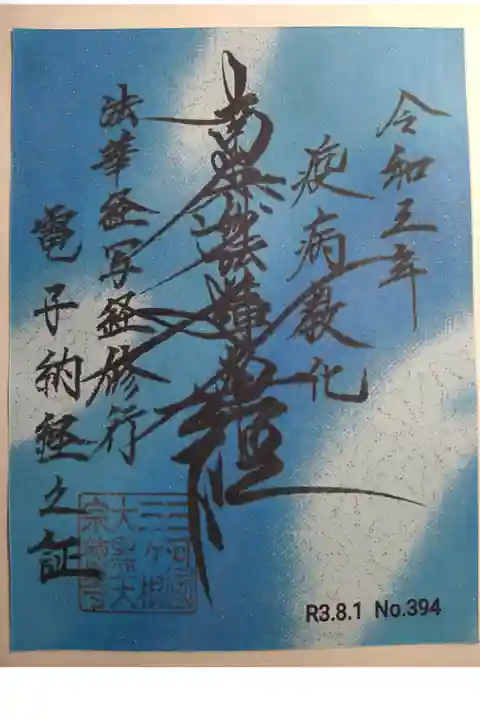 令和三年
疫病教化
南無妙法蓮華経
法華経写経修行
電子納経之証
三河国
三ヶ根
大黒天
宗徳寺
R3.8.1 No.394